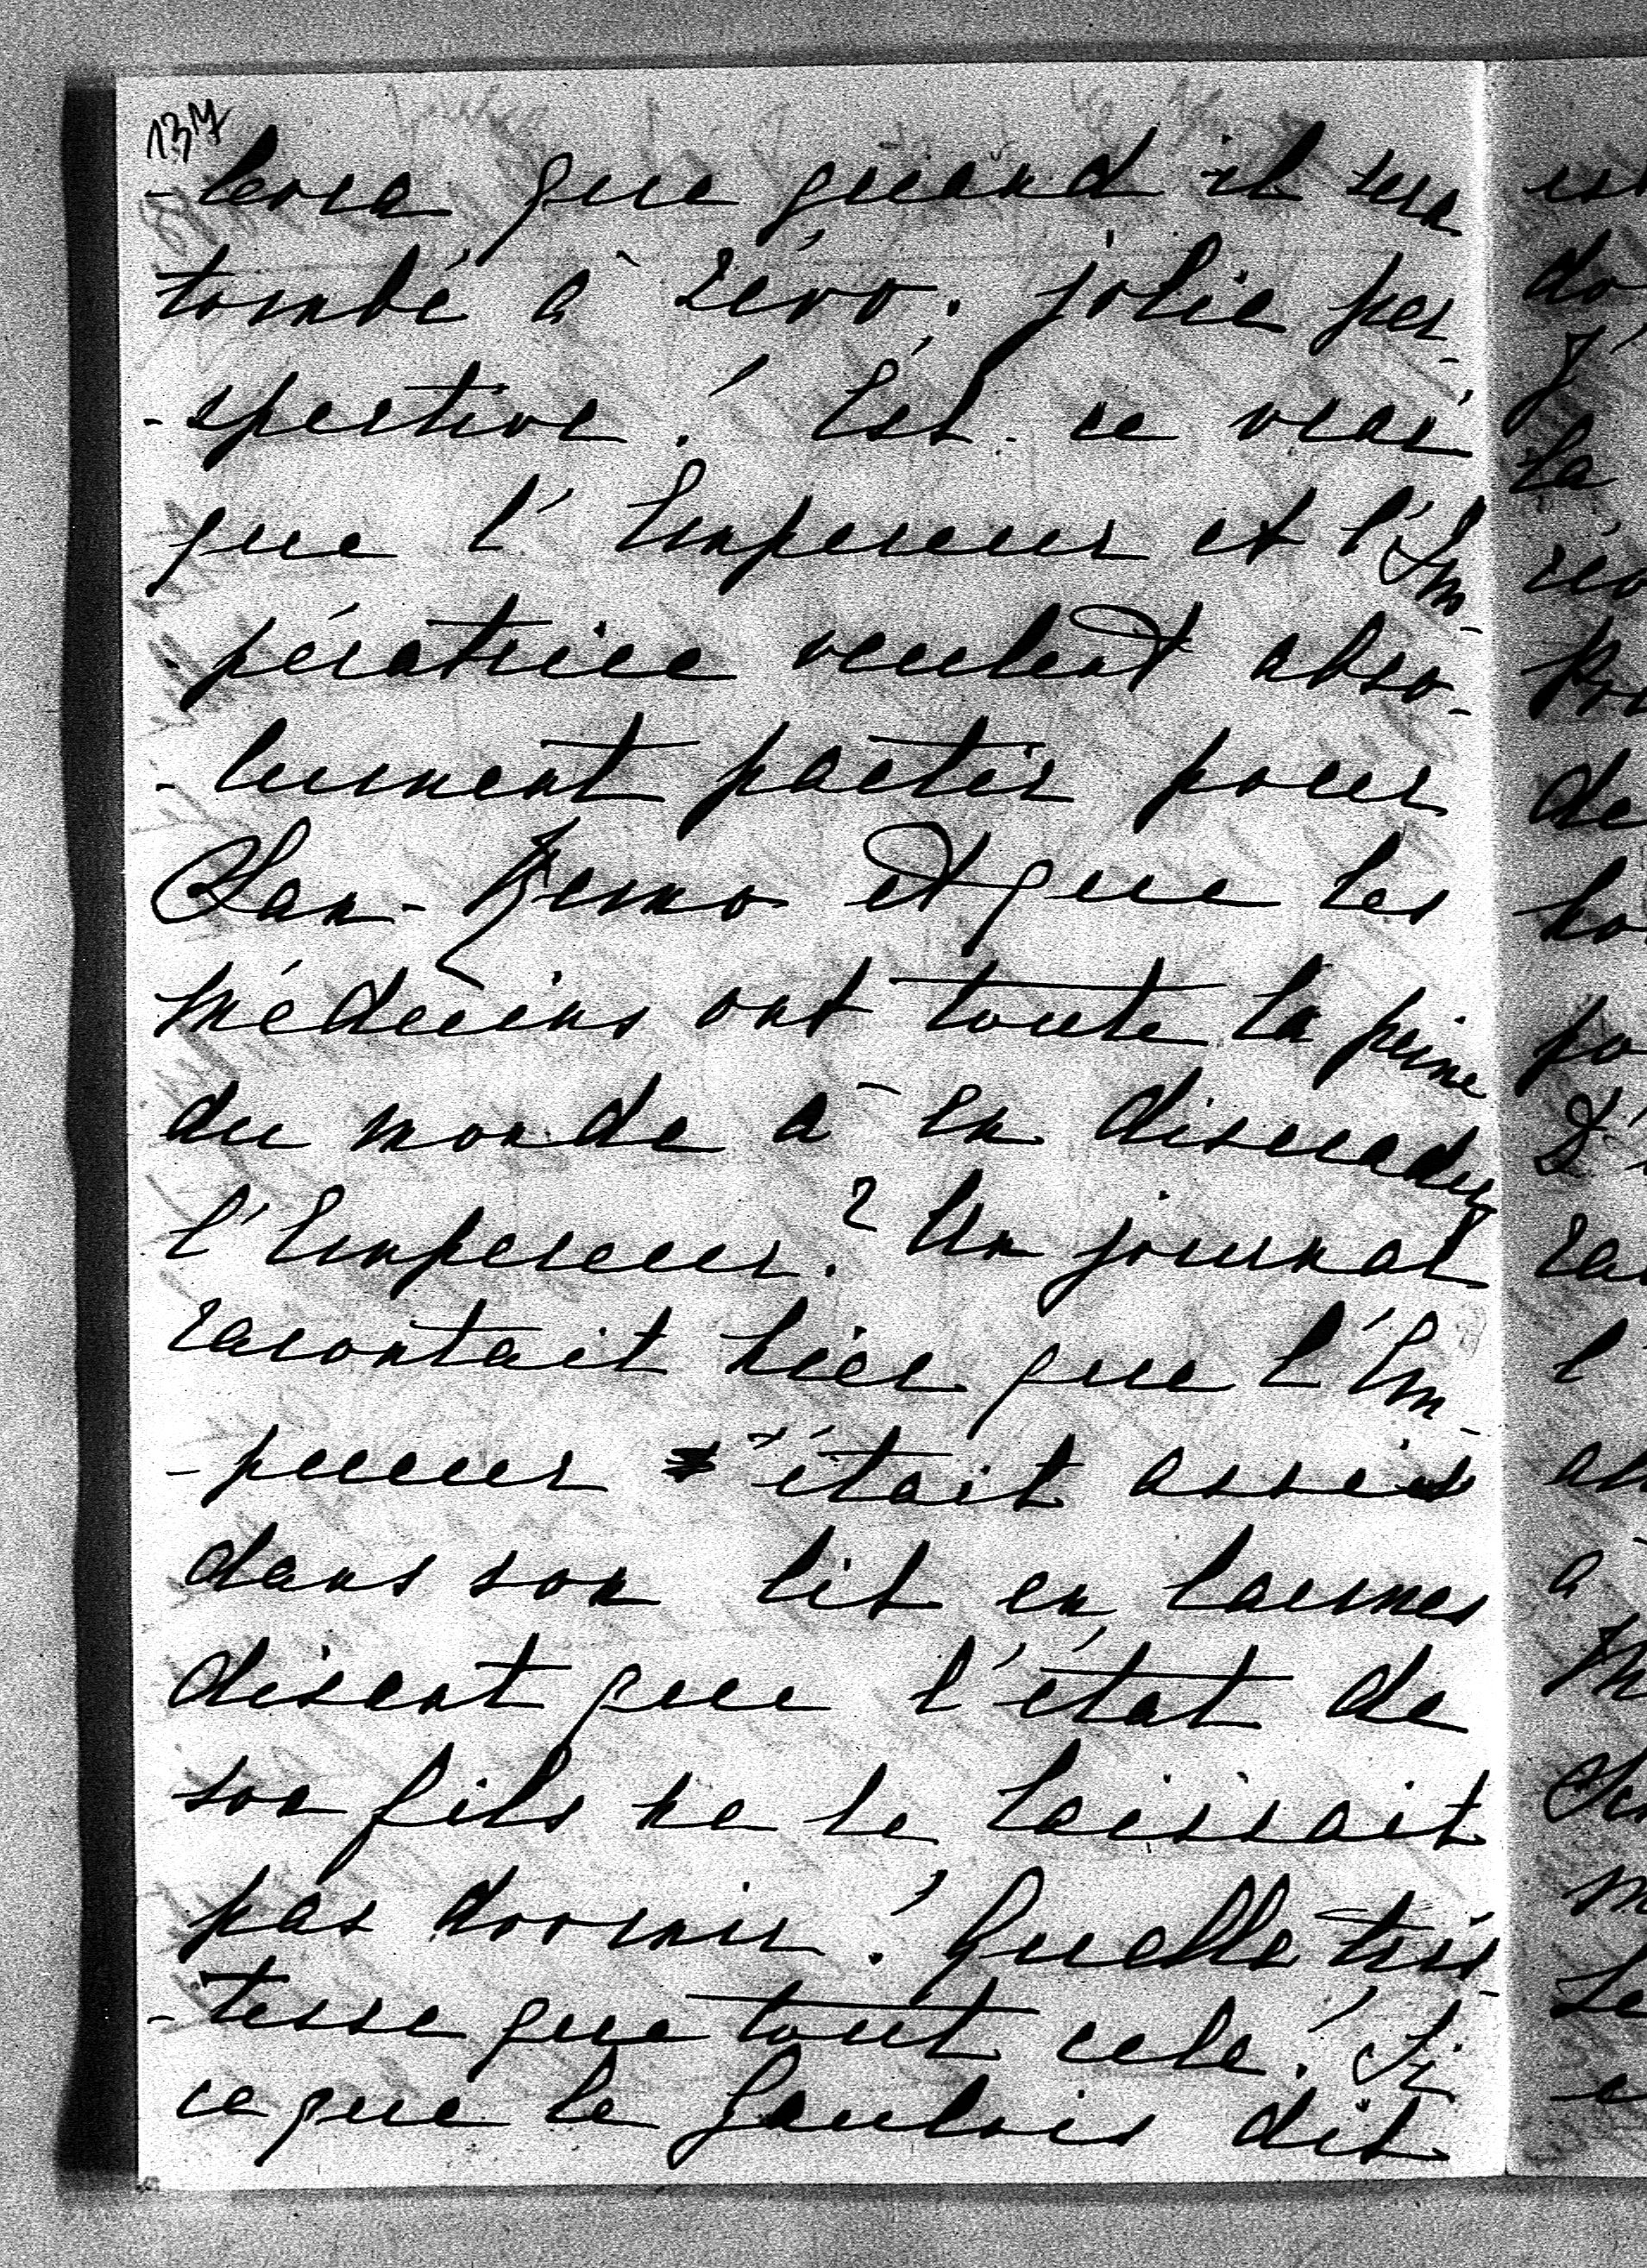 137
-lera que quand il sera
tombé à zéro. jolie per-
-spective! Est-ce vrai
que l'Empereur et l'Im-
-pératrice veulent abso-
-lument partir pour
San-Remo et que les
médecins ont toute la peine
du monde à en dissuader
l'Empereur? Un journal
racontait hier que l'Em-
-pereur était assis
dans son lit en larmes
disant que l'état de
son fils ne le laissait
pas dormir! Quelle tris-
-tesse que tout cela! Si
ce que le Gaulois dit